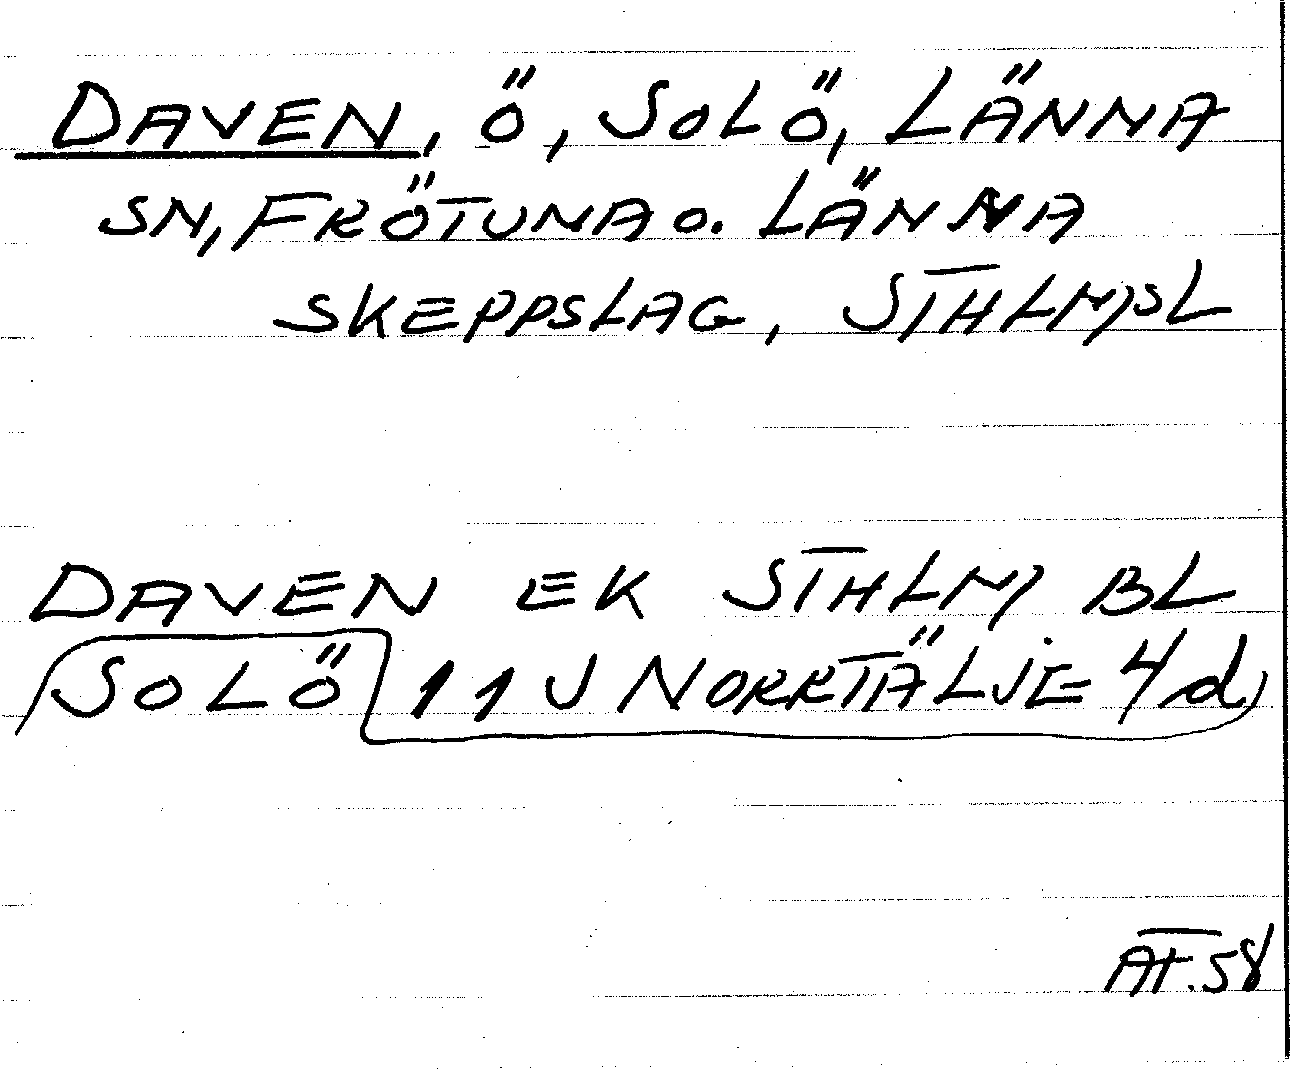 DAVEN, Ö, SOLÖ, LÄNNA
SN, FRÖTUNA O. LÄNNA
SKEPPSLAG, STHLMSL
DAVEN EK STHLM BL
SOLÖ 11 J NORRTÄLJE 4/d
AT.58